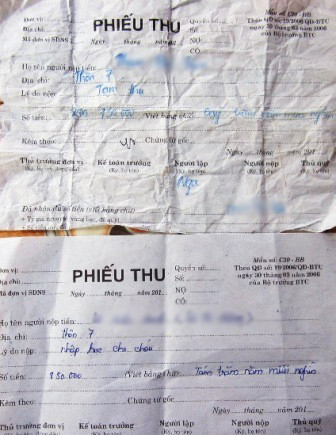 Đơn vị:
Địa chỉ:
Mã đơn vị SDNS
PHIẾU THU
Ngày tháng năm 20
Quyển số:
Số:
NỢ
CÓ
Mẫu số C30 - BB
Theo QĐ số 19/2006/QĐ-BTC
ngày 30 tháng 03 năm 2006
của Bộ trưởng BTC
Họ tên người nộp tiền:
Địa chỉ: Thôn 7
Lý do nộp: Tạm thu
Số tiền: (Viết bằng chữ)
Kèm theo: Chứng từ gốc
Ngày tháng năm 201
Thủ trưởng đơn vị Kế toán trưởng Người lập Người nộp Thủ quỹ
(Ký, họ tên) (Ký, họ tên) (Ký, họ tên) (Ký, họ tên)
Nga
Đã nhận đủ số tiền (Viết bằng chữ)
Đơn vị:
Địa chỉ:
Mã đơn vị SDNS
PHIẾU THU
Ngày tháng năm 201
Quyển số:
Số:
NỢ
CÓ
Mẫu số: C30 - BB
Theo QĐ số: 19/2006/QĐ-BTC
ngày 30 tháng 03 năm 2006
của Bộ trưởng BTC
Họ tên người nộp tiền:
Địa chỉ: Thôn 7
Lý do nộp: nhập học cho cháu
Số tiền: 850.000 (Viết bằng chữ) Tám trăm năm mươi nghìn
Kèm theo: Chứng từ gốc
Ngày tháng năm 201
Thủ trưởng đơn vị Kế toán trưởng Người lập Người nộp Thủ quỹ